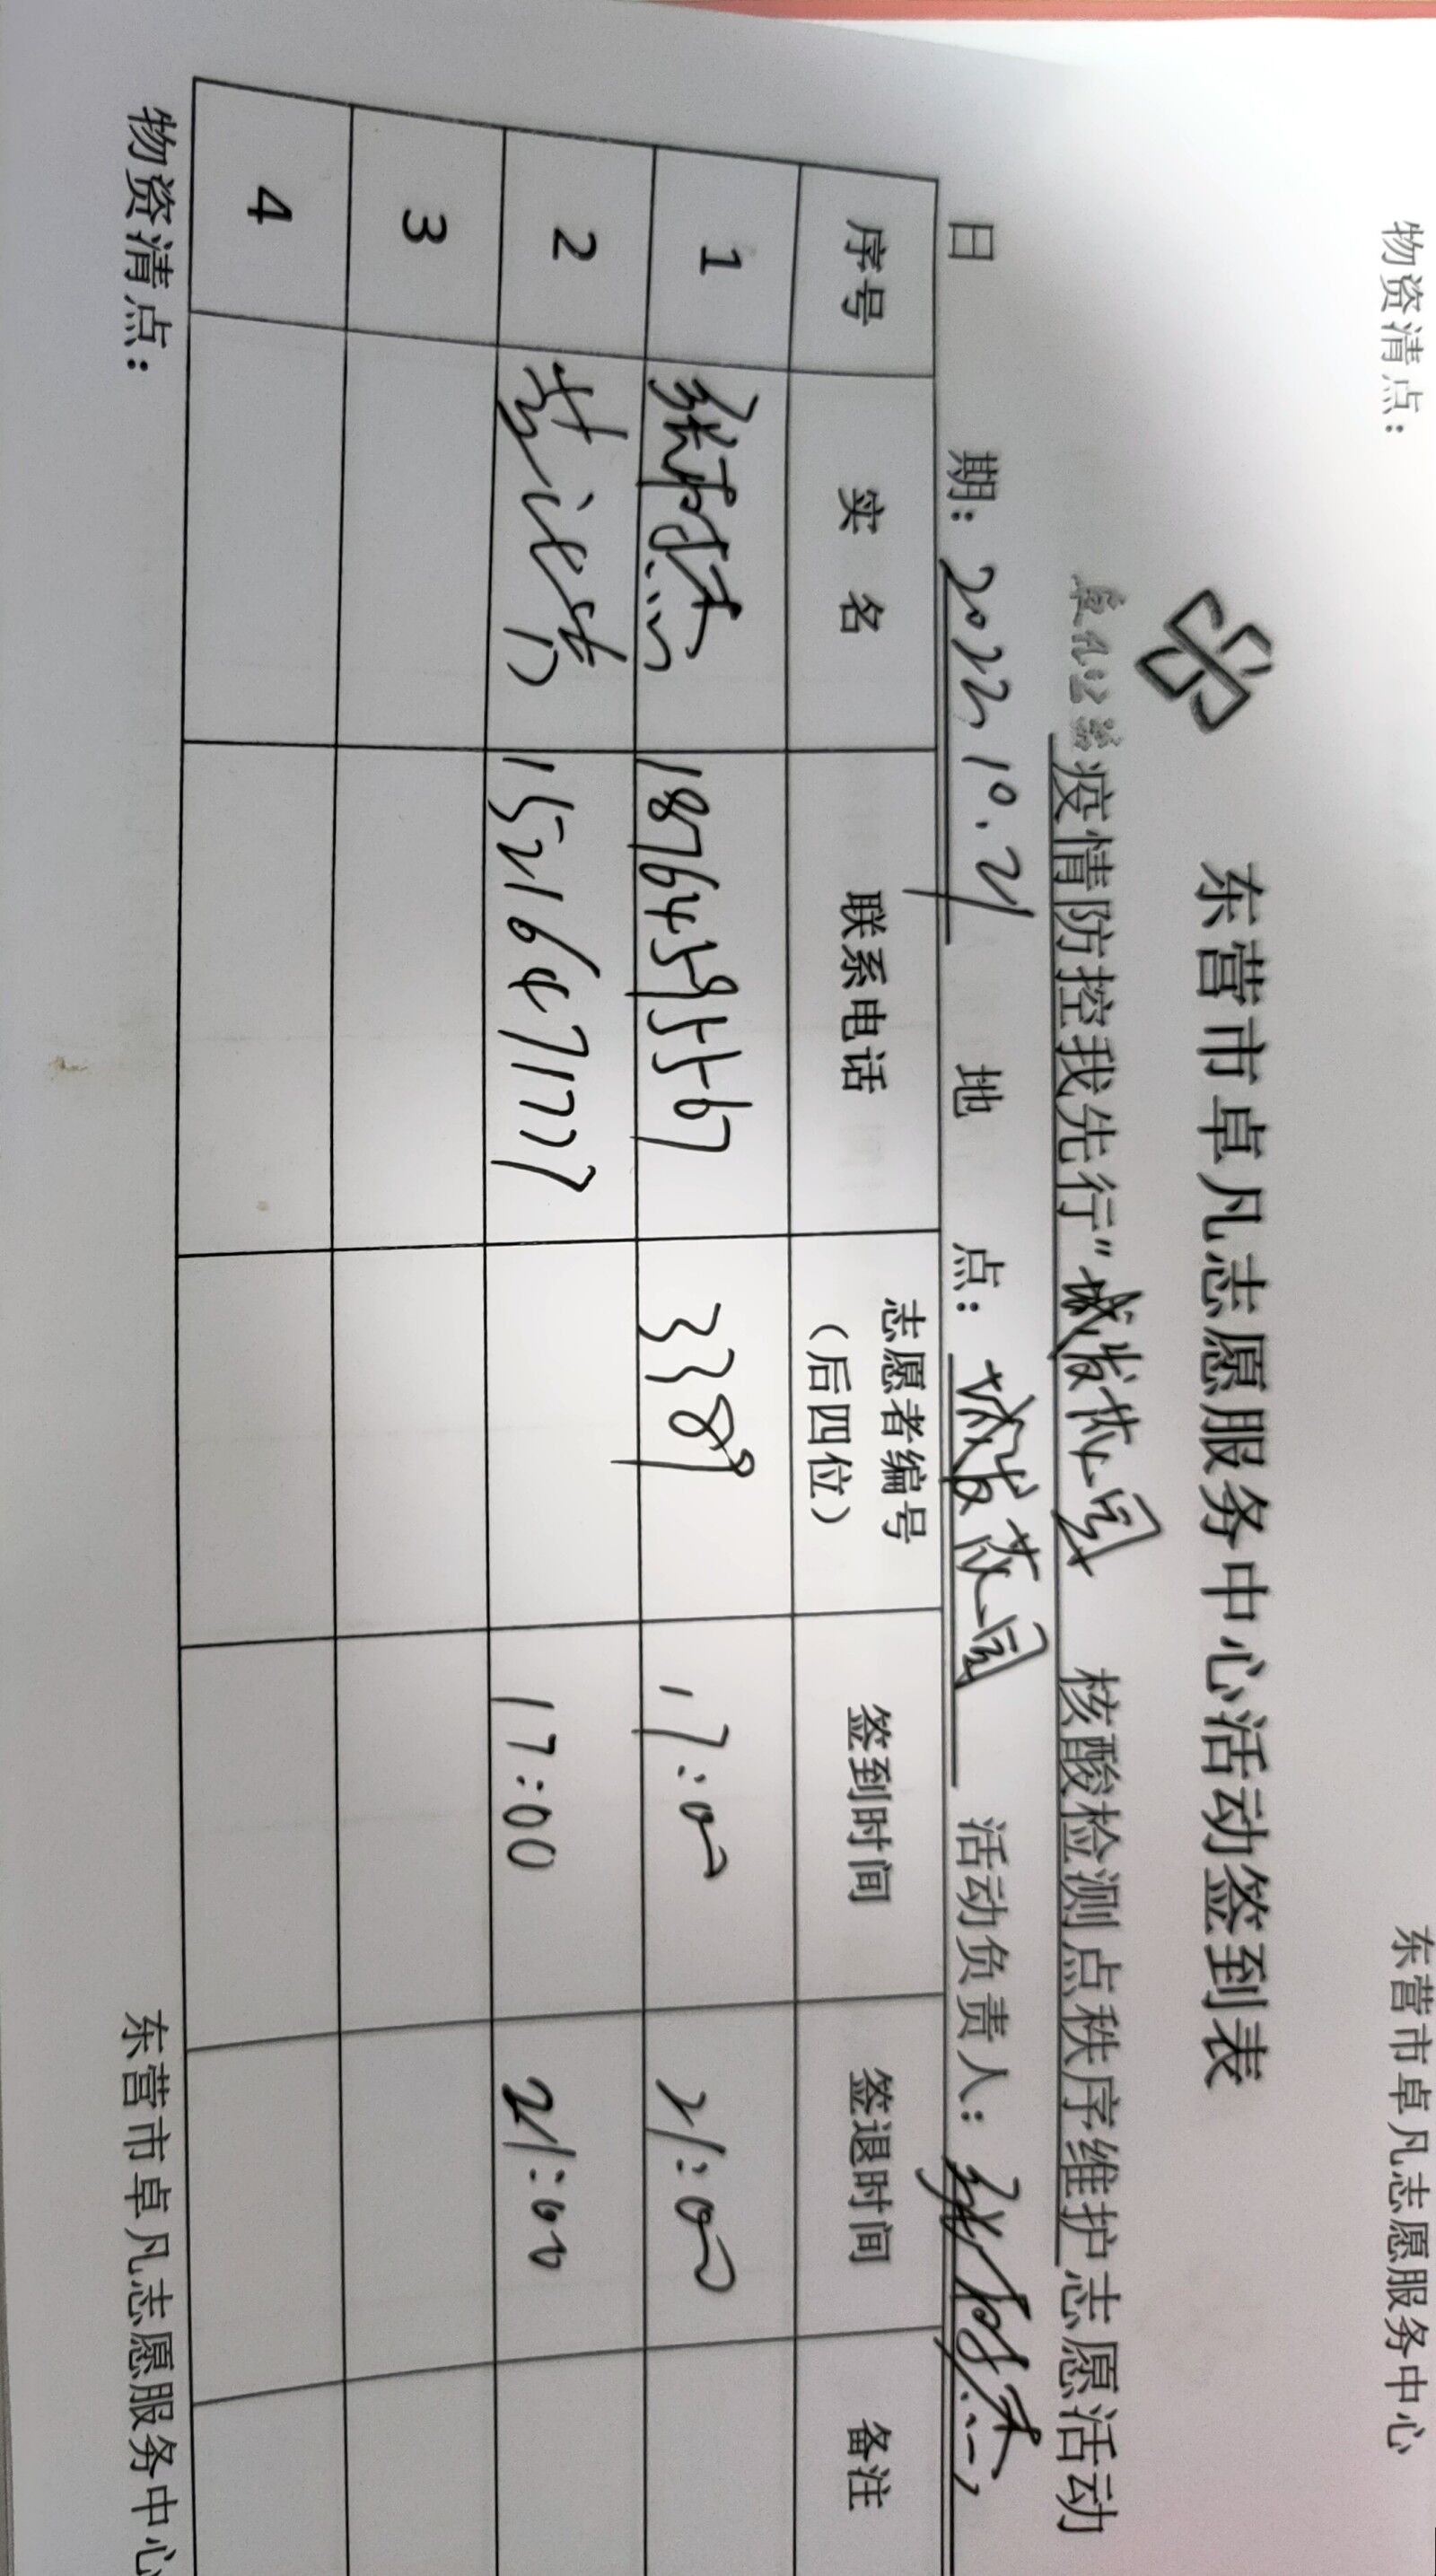 物资清点： 东营市卓凡志愿服务中心
东营市卓凡志愿服务中心活动签到表
卓凡公益
疫情防控我先行”城发花园 核酸检测点秩序维护志愿活动
日 期：2022.10.21 地 点：城发花园 活动负责人：张树杰
序号 实 名 联系电话 志愿者编号（后四位） 签到时间 签退时间 备注
1 张树杰 18764595567 3389 17:00 21:00
2 15216471777 17:00 21:00
3
4
物资清点： 东营市卓凡志愿服务中心